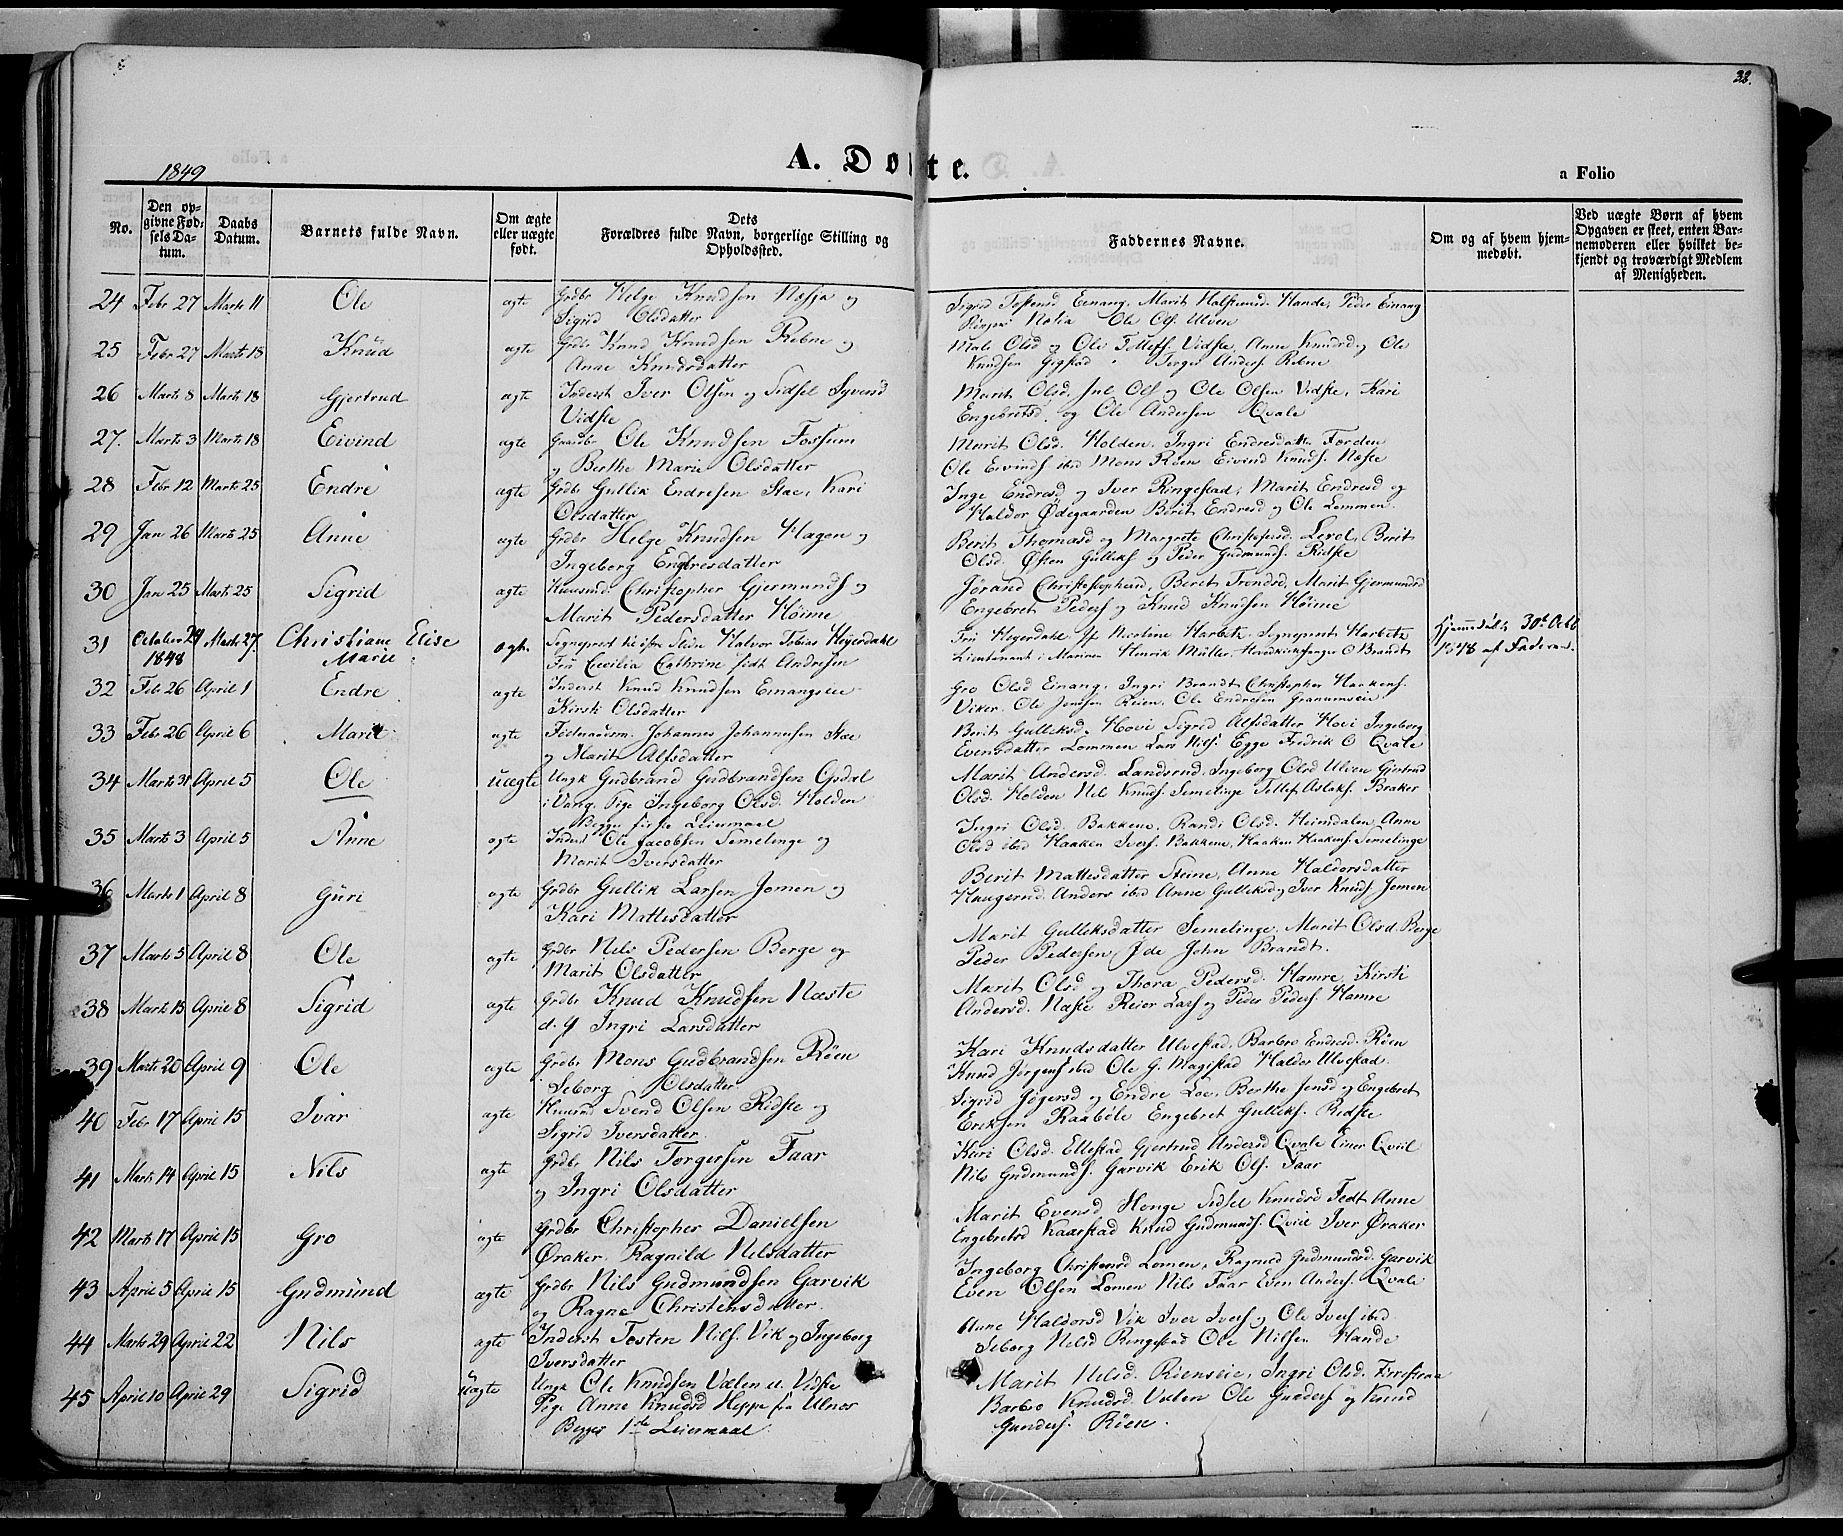 33.
1849
A. Døbte.
a Folio
No.
Den opgivne Fødsels Datum.
Daabs Datum.
Barnets fulde Navn.
Om ægte eller uægte født.
Dets Forældres fulde Navn, borgerlige Stilling og Opholdssted.
Faddernes Navne.
Om og af hvem hjemmedøbt.
Ved uægte Børn af hvem Opgaven er skeet, enten Barnemoderen eller hvilket bekjendt og troværdigt Medlem af Menigheden.
24 Febr 27 Marts 11 Ole ægte Grdbr Helge Knudsen Næsja og
Sigrid Olsdatter
Sigrid Tostensd Einang, Marit Halsteinsd. Hande, Peder Einang
Ole Ols. Ulven
25 Febr 27 Marts 18 Knud ægte Grdbr Knud Knudsen Rebne og
Anne Knudsdatter
Mali Olsd og Ole Tollefs. Vidste, Anne Knudsd og Ole
Knudsen Gigstad Torger Anders. Rebne
26 Marts 8 Marts 18 Gjertrud ægte Inderst Iver Olsen og Sidsel Syvend
Vidste
Marit Olsd. Ols og Ole Olsen Vidste, Kari
Engebretsd. og Ole Andersen Qvale
27. Marts 3 Marts 18 Eivind ægte Gaardbr Ole Knudsen Fossum
og Berthe Marie Olsdatter
Marit Olsd. Holden. Ingri Endresdatter Forden
Ole Eivinds ibid Mons Röen Eivind Knuds. Næste
28 Febr 12 Marts 25 Endre ægte Grdbr Gullik Endresen Stæe, Kari
Olsdatter
Inge Endresd og Iver Ringestad, Marit Endresd og
Haldor Ødegaarden Berit Endresd og Ole Lommen
29 Jan 26 Marts 25 Anne ægte Grdbr Helge Knudsen Hagen og
Ingeborg Endresdatter
Berit Thomasd og Margrete Christophersd. Levol, Berit
Olsd, Östen Gulliks og Peder Gudmunds. Ridste
30 Jan 25 Marts 25 Sigrid ægte Huusmd. Christopher Gjermunds og
Marit Pedersdatter Höime
Jörand Christophersd, Berit Trondsd, Marit Gjermundsd
Engebret Peders og Knud Knudsen Höime
31 October 29 1848 Marts 27. Christiane Elise
Marie ægte. Sogneprest til östre Slidre Halvor Tobias Heyerdahl
Fru Cecilia Cathrine födt Andresen
Fru Heyerdahl, Jf Martine Harbitz, Sogneprest Harbitz
Lieutenant i Marinen Henrik Müller, Hovedkirkesanger O Brandt
Hjemmedöbt 30te Octb
1848 af Faderen.
32 Feb 26 April 1 Endre ægte Inderst Knud Knudsen Einangseie
Kirsti Olsdatter
Gro Olsd Einang, Ingri Brandt Christopher Haakens.
Viker, Ole Jensen Reien, Ole Endresen Granumseie
33 Febr 26 April 6 Marit ægte Johannes Johannesen Stæe
og Marit Alfsdatter
Berit Gulleksd. Hovi Sigrid Alfsdatter Hovi Ingeborg
Evensdatter Lommen Lars Nils. Egge Fredrik O Qvale
34 Marts 31 April 5 Ole uægte Ungk Gudbrand Gudbrandsen Opdal
i Vang. Pige Ingeborg Olsd. Holden
Begges förste Leiermaal
Marit Andersd. Landsend, Ingeborg Olsd Ulven Gjertrud
Olsd. Holden Nils Knuds. Semelinge Tollef Aslaks. Braker
35 Marts 3 April 5 Anne ægte Inderst Ole Jacobsen Semelinge og
Marit Iversdatter
Ingri Olsd. Bakkene, Randi Olsd. Heimdalen, Anne
Olsd ibid Haaken Ivers. Bakkene, Haaken Haakens. Semelinge
36 Marts 1 April 8 Guri ægte Grdbr Gullik Larsen Jomen og
Kari Mattisdatter
Berit Mattisdatter Steine, Anne Haldorsdatter
Haugerud Anders ibid Anne Gulleksd og Iver Knuds Jomen
37 Marts 5 April 8 Ole ægte Grdbr Nils Pedersen Berge og
Marit Olsdatter
Marit Gulleksdatter Semelinge, Marit Olsd. Berge
Peder Pedersen, Ide John Brandt.
38 Marts 15 April 8 Sigrid ægte Grdbr Knud Knudsen Næste
d. y Ingri Larsdatter
Marit Olsd og Thora Pedersd. Hamre, Kirsti
Andersd. Næste Reier Lars og Peder Peders Hamre
39 Marts 20 April 9 Ole ægte Grdbr Mons Gudbrandsen Röen
Seborg Olsdatter
Kari Knudsdatter Ulvestad, Barbro Endresd. Röen
Knud Jörgens ibid Ole G. Magistad Haldor Ulvestad.
40 Febr 17 April 15 Ivar ægte Huusmd Svend Olsen Ridste og
Sigrid Iversdatter.
Sigrid Jögersd og Endre Loe, Berthe Jensd og Engebret
Eriksen Raaböle Engebret Gulleks. Ridste
41 Marts 14 April 15 Nils ægte Grdbr Nils Torgersen Faar
og Ingri Olsdatter
Kari Olsd. Ellestad Gjertrud Andersd Qvale Einer Qviil
Nils Gudmunds. Garvik Erik Ols. Faar
42 Marts 17 April 15 Gro ægte Grdbr Christopher Danielsen
Öraker, Ragnild Nilsdatter
Marit Evensd Honge Sidsel Knudsd Tedt Anne
Engebretsd Kaarstad Knud Gudmunds. Qviil Iver Öraker
43 April 5 April 15 Gudmund ægte Grdbr Nils Gudmundsen Garvik
og Ragne Christensdatter.
Ingeborg Christensd Lomen, Ragnild Gudmundsd. Garvik
Even Olsen Lomen Nils Faar Even Anders. Qvale
44 Marts 29 April 22 Nils ægte Inderst Tosten Nils. Vik og Ingeborg
Iversdatter
Anne Haldorsd Vik Iver Ivers og Ole Ivers ibid
Seborg Nilsd Ringestad Ole Nilsen Hande
45 April 10 April 29 Sigrid uægte Ungk Ole Knudsen Valen u. Vidste
Pige Anne Knudsd Heppe fra Ulnes
Begges 1ste Leiermaal
Marit Nilsd. Röenseie, Ingri Olsd.
Barbro Knudsd. Valen Ole Gunders og Knud
Gunders. Röen.